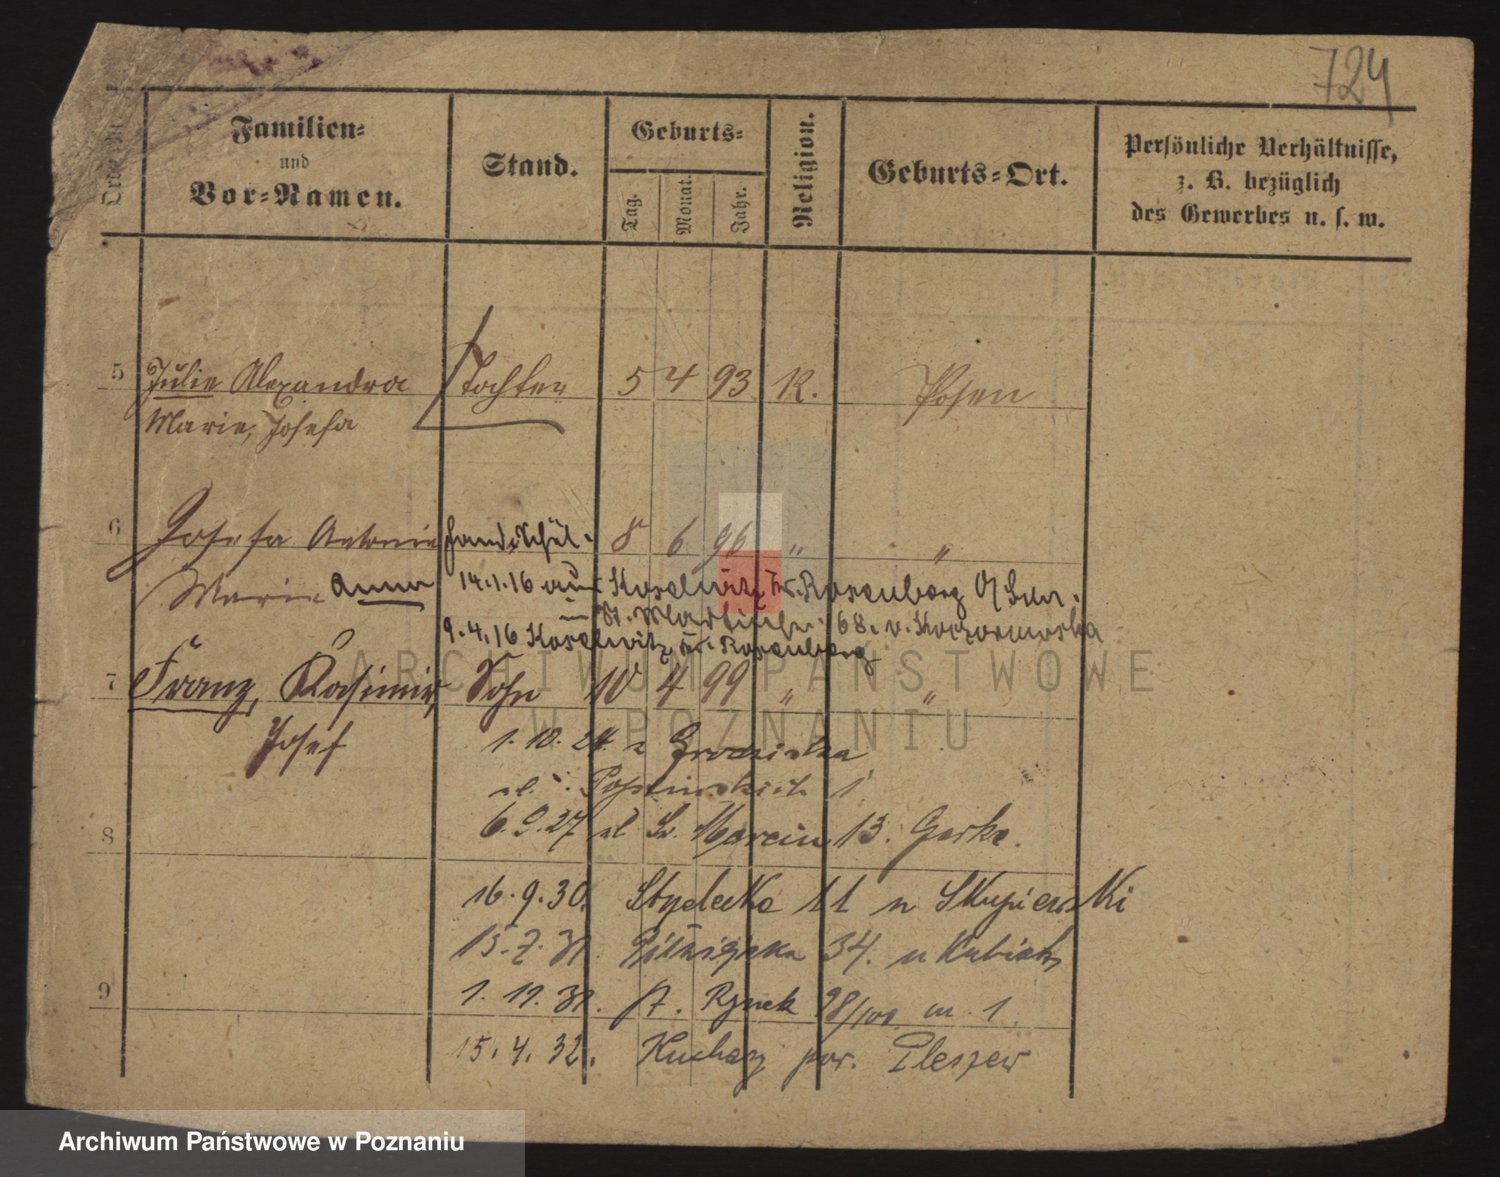 724
Familien=
und
Vor=Namen.
Stand.
Geburts=
Tag.
Monat.
Jahr.
Religion.
Geburts=Ort.
Persönliche Verhältnisse,
z. B. bezüglich
des Gewerbes u. s. w.
5 Julie Alexandra Tochter 5 4 93 K. Posen
Marie, Josefa
6 Josefa Antonie 8 6 96 " "
Marie Anna 14.1.16 aus Koselwitz Kr. Rosenberg O/
St. Martinstr. 68. v.
9.4.16 Koselwitz Kr. Rosenberg
7 Franz, Kasimir, Sohn 10 4 99 " "
Josef
1.10.24 z Grodziska
1
8 6.9.27 ul Św. Marcin 13. Gerke.
16.9.30. 11 u Skupiewski
15.7.31. 34. u Kubiak
9 1.11.31. St. Rynek 98/100 m. 1
15.4.32. Kuchary pow. Pleszew
ARCHIWUM PAŃSTWOWE
W POZNANIU
Archiwum Państwowe w Poznaniu